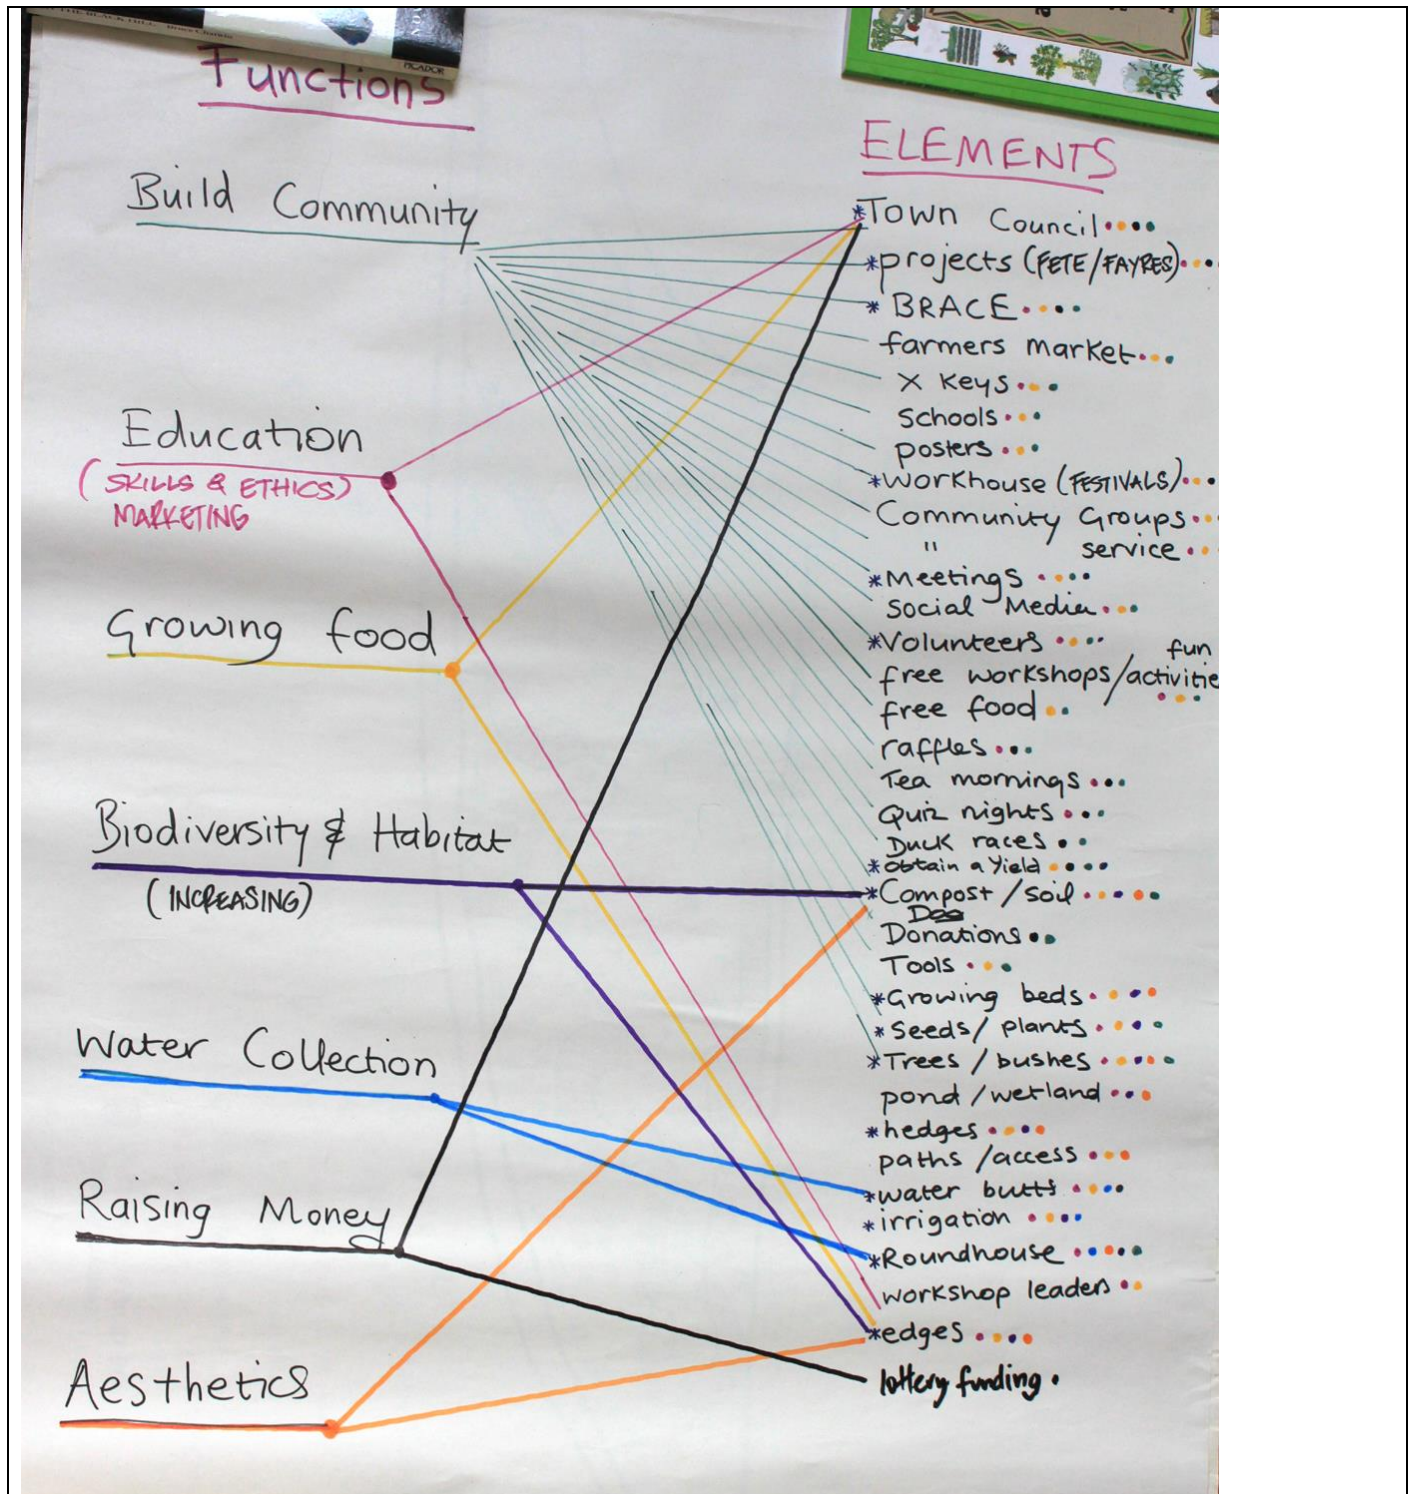 THE BLACK HILL Bruce Chatwin
PICADOR
Functions
Build Community
Education
(SKILLS & ETHICS)
MARKETING
Growing food
Biodiversity & Habitat
(INCREASING)
Water Collection
Raising Money
Aesthetics
ELEMENTS
*Town Council
*projects (FETE/FAYRES)
* BRACE
farmers market
X Keys
Schools
posters
*Workhouse (FESTIVALS)
Community Groups
" service
*Meetings
Social Media
*Volunteers
fun
free workshops/activitie
free food
raffles
Tea mornings
Quiz nights
Duck races
*obtain a yield
*Compost / soil
Donations
Tools
*Growing beds
*Seeds/ plants
*Trees / bushes
pond / wetland
*hedges
paths /access
*water butts
*irrigation
*Roundhouse
workshop leaders
*edges
lottery funding